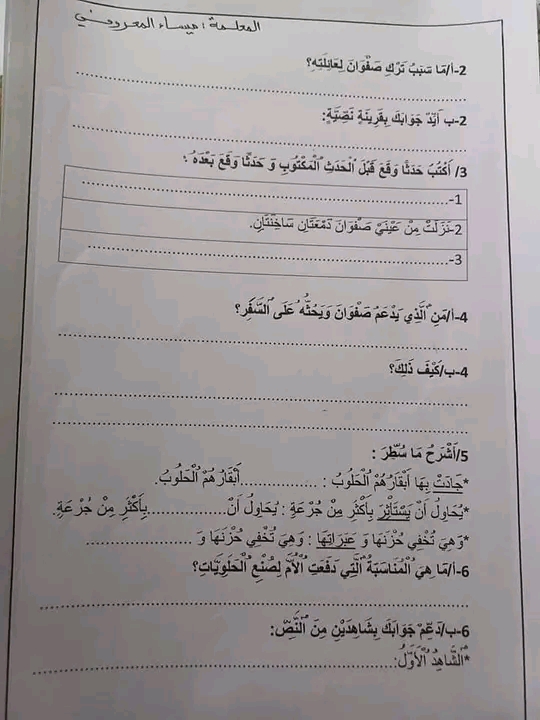 المعلمة : ميساء المعروفي
2-أ/مَا سَبَبُ تَرْكِ صَفْوَانَ لِعَائِلَتِهِ؟
2-ب أَيِّدْ جَوَابَكَ بِقَرِينَةٍ نَصِّيَّةٍ:
3/ أَكْتُبُ حَدَثًا وَقَعَ قَبْلَ الْحَدَثِ الْمَكْتُوبِ وَ حَدَثًا وَقَعَ بَعْدَهُ :
1-
2-نَزَلَتْ مِنْ عَيْنَيْ صَفْوَانَ دَمْعَتَانِ سَاخِنَتَانِ.
3-
4-أ/مَنِ الَّذِي يَدْعَمُ صَفْوَانَ وَيَحُثُّهُ عَلَى السَّفَرِ؟
4-ب/كَيْفَ ذَلِكَ؟
5/أَشْرَحُ مَا سُطِّرَ :
*جَادَتْ بِهَا أَبْقَارُهُمْ الْحَلُوبُ : ..................أَبْقَارُهُمْ الْحَلُوبُ.
*يُحَاوِلُ أَنْ يَسْتَأْثِرَ بِأَكْثَرِ مِنْ جُرْعَةٍ : يُحَاوِلُ أَنْ..................بِأَكْثَرِ مِنْ جُرْعَةٍ.
*وَهِيَ تُخْفِي حُزْنَهَا وَ عَبَرَاتِهَا : وَهِيَ تُخْفِي حُزْنَهَا وَ ..................
6-أ/مَا هِيَ الْمُنَاسَبَةُ الَّتِي دَفَعَتِ الْأُمَّ لِصُنْعِ الْحَلَوِيَّاتِ؟
6-ب/دَعِّمْ جَوَابَكَ بِشَاهِدَيْنِ مِنَ النَّصِّ:
*الشَّاهِدُ الْأَوَّلُ: